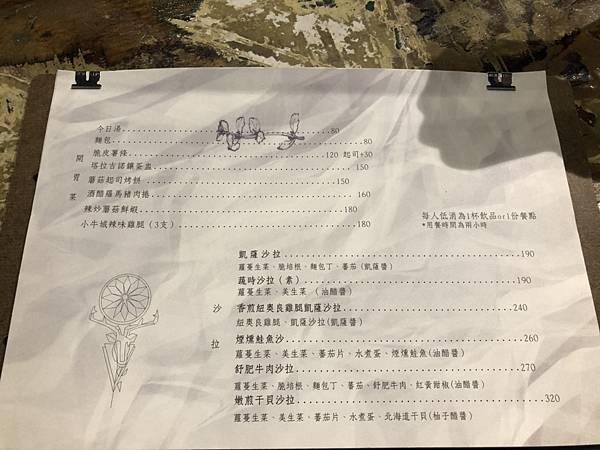 今日湯......80
麵包......80
脆皮薯條......120 起司+30
塔拉吉諾鑲蛋盅......150
蘑菇起司烤餅......150
酒醋羅馬豬肉捲......160
辣炒蘑菇鮮蝦......180
小牛城辣味雞腿(3支)......180
開胃菜
每人低消為1杯飲品or1份餐點
*用餐時間為兩小時
沙拉
凱薩沙拉......190
蘿蔓生菜、脆培根、麵包丁、番茄(凱薩醬)
蔬時沙拉(素)......190
蘿蔓生菜、美生菜 (油醋醬)
香煎紐奧良雞腿凱薩沙拉......240
紐奧良雞腿、凱薩沙拉(凱薩醬)
煙燻鮭魚沙......260
蘿蔓生菜、美生菜、蕃茄片、水煮蛋、煙燻鮭魚(油醋醬)
舒肥牛肉沙拉......270
蘿蔓生菜、脆培根、麵包丁、蕃茄、舒肥牛肉、紅黃甜椒(油醋醬)
嫩煎干貝沙拉......320
蘿蔓生菜、美生菜、蕃茄片、水煮蛋、北海道干貝(柚子醋醬)